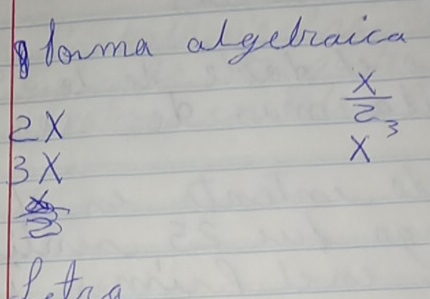 forma algebraica
2X
3X
X/2
X³
Letra